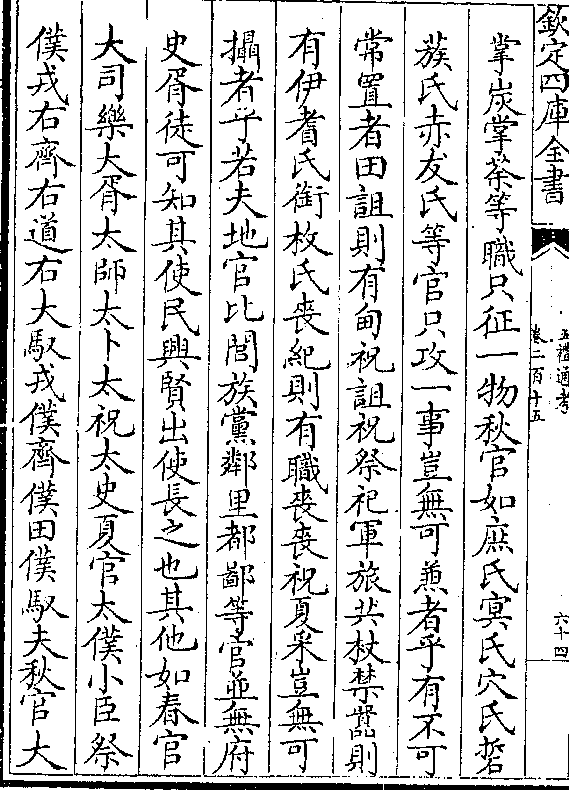 欽定四庫全書
五禮通考
卷二百十五
六十四
掌炭掌荼等職只征一物秋官如庶氏冥氏穴氏硩
蔟氏赤犮氏等官只攻一事豈無可兼者乎有不可
常置者田詛則有甸祝詛祝祭祀軍旅共杖禁嚚則
有伊耆氏銜枚氏喪紀則有職喪喪祝夏采豈無可
攝者乎若夫地官比閭族黨鄰里都鄙等官並無府
史胥徒可知其使民興賢出使長之也其他如春官
大司樂大胥太師太卜太祝太史夏官太僕小臣祭
僕戎右齊右道右大馭戎僕齊僕田僕馭夫秋官大